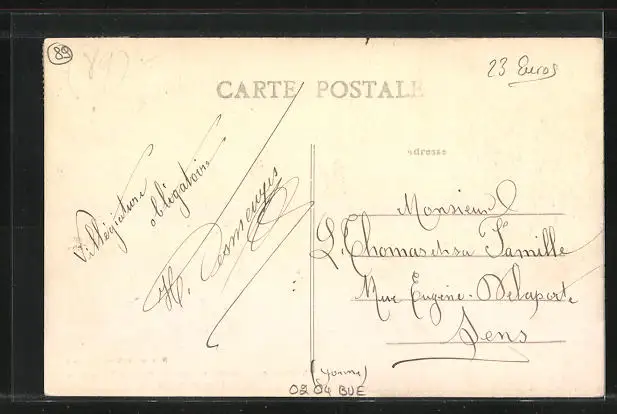 89
(89)
23 Euros
CARTE POSTALE
adresse
Villégiature
obligatoire
H. Desmeuzes
Monsieur
L. Thomas et sa Famille
Rue Eugène Delaporte
Sens
(Yonne)
02 04 BUE